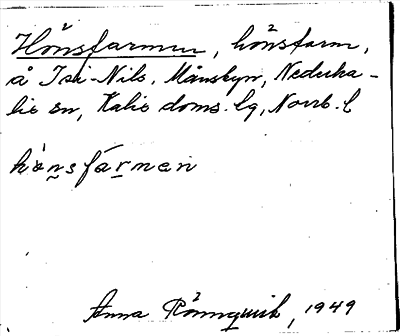 Hönsfarmen, hönsfarm,
å Isa-Nils, Månsbyn, Nederka-
lix sn, Kalix doms. lg, Norrb. l
hönsfármen
Anna Rönnqvist, 1949